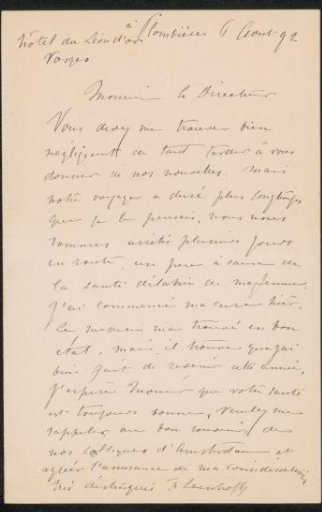 à Plombières 6 Aout 92
hôtel du Lion d'or
Vosges
Monsieur le Directeur
Vous devez me trouver bien
négligent de tant tarder à vous
donner de nos nouvelles. mais
notre voyage a duré plus longtemps
que je le pensais, nous nous
sommes arrêté plusieurs jours
en route, un peu à cause de
la santé délicate de ma femme.
J'ai commencé ma cure hier.
le médecin m'a trouvé en bon
état, mais il trouve que j'ai
bien fait de revenir cette année.
J'espère Monsieur que votre santé
est toujours bonne, veuillez me
rappeler au bon souvenir de
nos collègues d'Amsterdam et
agréer l'assurance de ma considération
très distinguée F. Leenhoff